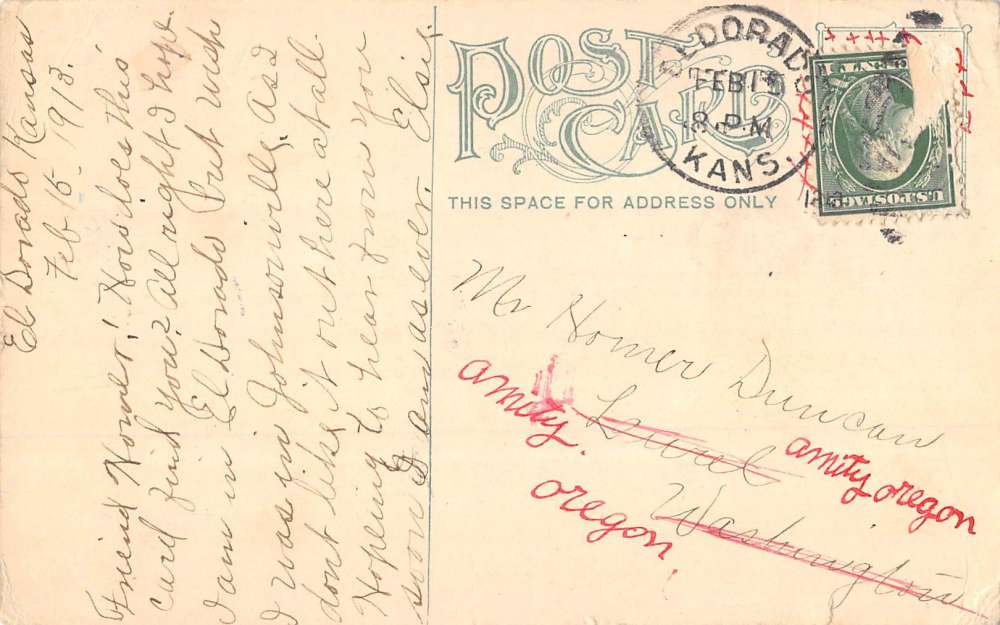 El Dorado Kansas
Feb 15- 1913.
Friend Homer! How does this
card find you? All right I hope.
I am in El Dorado but wish
I was in Johnsonville, as I
dont like it out here at all.
Hopeing to hear from you
soon
answer. Elsie
POST CARD
THIS SPACE FOR ADDRESS ONLY
EL DORADO
FEB 15
8 P.M
KANS.
U.S. POSTAGE
Mr Homer Duncan
Laurel
Washington
amity.
oregon
amity oregon